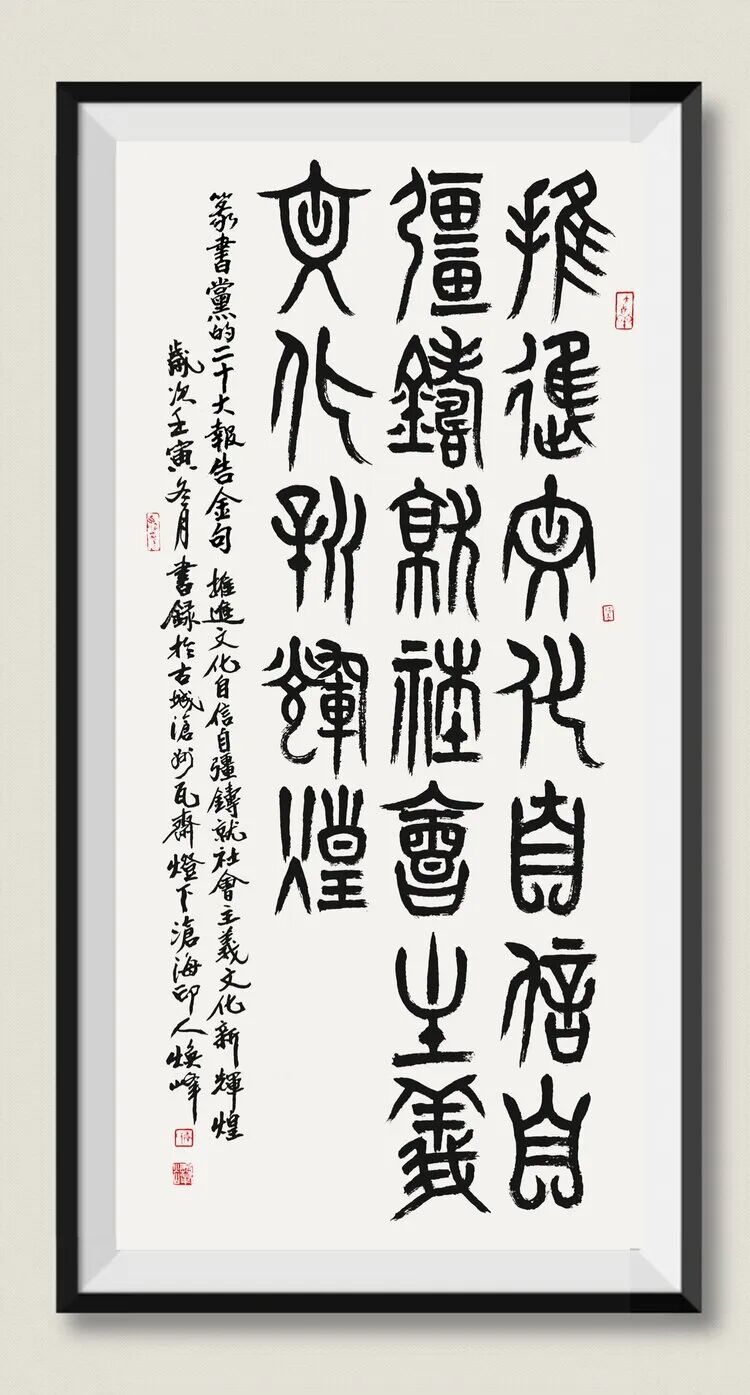 推進文化自信自
彊鑄就社會主義
文化新輝煌
篆書黨的二十大報告金句 推進文化自信自彊鑄就社會主義文化新輝煌
歲次壬寅冬月書録於古城滄州瓦齋燈下滄海印人煥峰